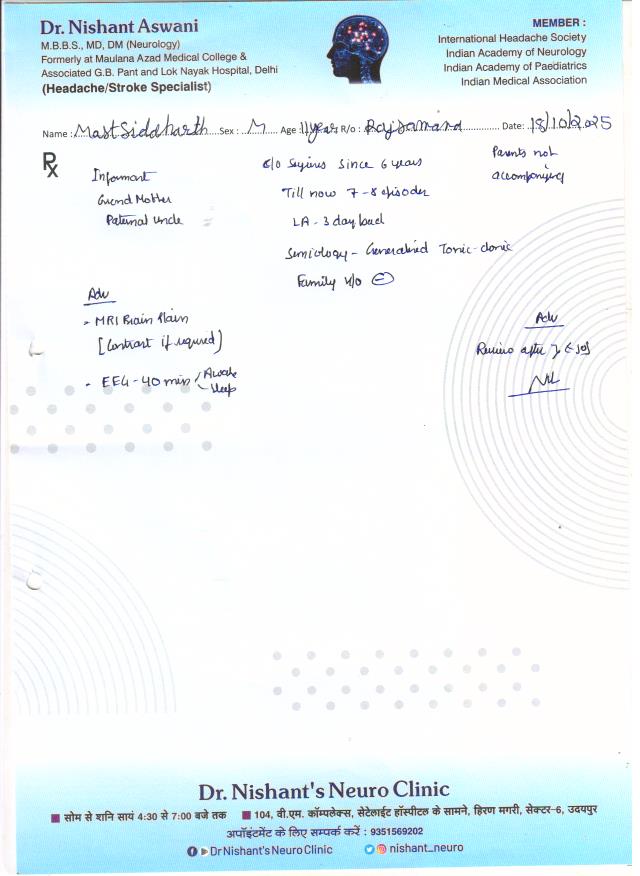 Dr. Nishant Aswani
M.B.B.S., MD, DM (Neurology)
Formerly at Maulana Azad Medical College &
Associated G.B. Pant and Lok Nayak Hospital, Delhi
(Headache/Stroke Specialist)
MEMBER :
International Headache Society
Indian Academy of Neurology
Indian Academy of Paediatrics
Indian Medical Association
Name : Mast Siddharth Sex : M Age 11 years R/o : Rajsamand Date: 18/10/2025
Rx
Informant
Grand Mother
Paternal uncle
c/o Seizures since 6 years
Till now 7-8 episodes
LA - 3 day back
Semiology - Generalised Tonic-clonic
Family h/o ⊖
Parents not
accompanying
Adv
- MRI Brain Plain
[Contrast if required]
- EEG - 40 min / Awake
Sleep
Adv
Review after
Dr. Nishant's Neuro Clinic
सोम से शनि सायं 4:30 से 7:00 बजे तक 104, वी.एम. कॉम्पलेक्स, सेटेलाईट हॉस्पीटल के सामने, हिरण मगरी, सेक्टर-6, उदयपुर
अपॉइंटमेंट के लिए सम्पर्क करें : 9351569202
Dr Nishant's Neuro Clinic nishant_neuro